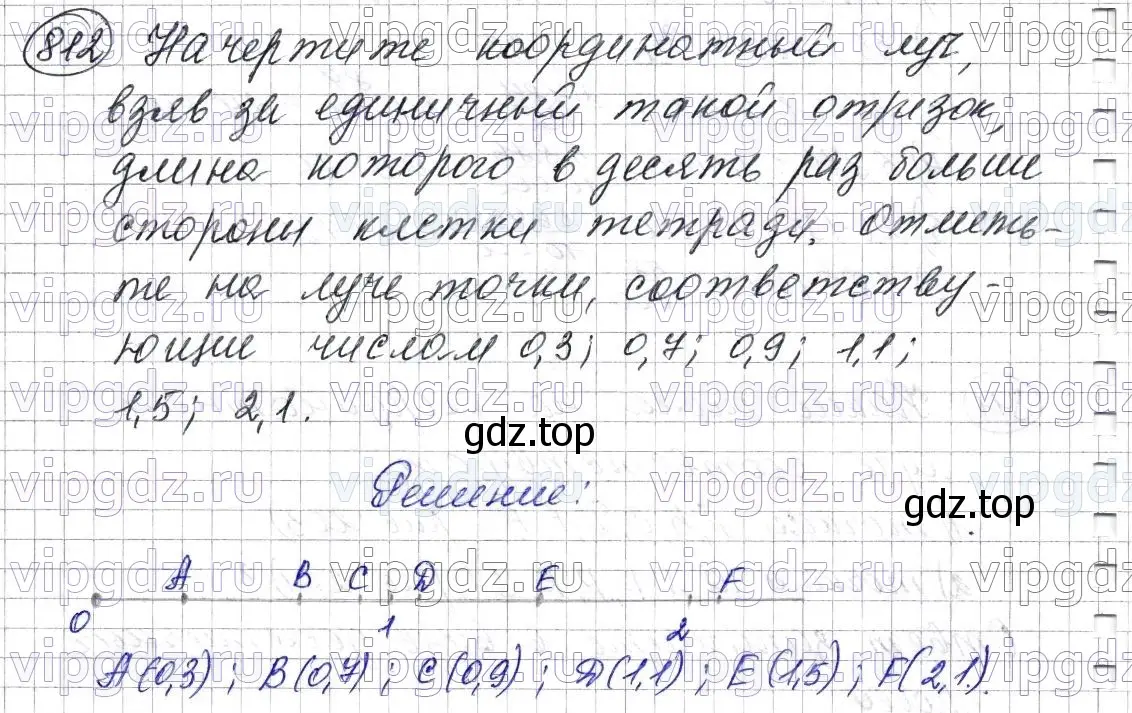 812 Начертите координатный луч,
взяв за единичный такой отрезок,
длина которого в десять раз больши
стороны клетки тетради. Отметь-
те на луче точки, соответству-
ющие числам 0,3; 0,7; 0,9; 1,1;
1,5; 2,1.
gdz.top
Решение:
gdz.top
A B C D E F
0 1 2
A(0,3); B(0,7); C(0,9); D(1,1); E(1,5); F(2,1).
vipgdz.ru